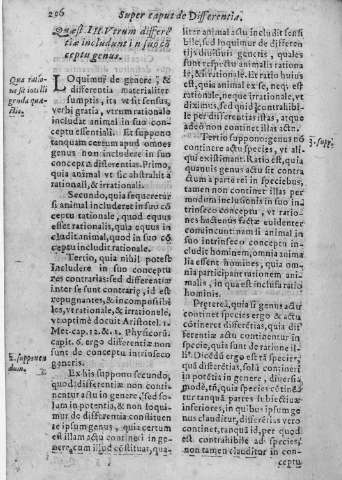 206 Super caput de Differentia.
Quæst. III. Vtrum differẽ
tiæ includunt in suo cõ
ceptu genus.
Qua ratio
ne sit intelli
genda quæ
stio.
LOquimur de genere, &
differentia materialiter
sumptis, ita vt sit sensus,
verbi gratia, vtrum rationale
includat animal in suo con
ceptu essentiali. Et suppono
tanquam certum apud omnes
genus non includere in suo
conceptu differentias. Primo,
quia animal vt sic abstrahit à
rationali, & irrationali.
Secundo, quia sequeretur
si animal includeret in suo cõ
ceptu rationale, quod equus
esset rationalis, quia equus in
cludit animal, quod in suo cõ
ceptu includit rationale.
Tertio, quia nihil potest
includere in suo conceptu
res contrarias: sed differentiæ
inter se sunt contrariæ, id est
repugnantes, & incompossibi
les, vt rationale, & irrationale,
vt optimè docuit Aristotel. 1.
Met. cap. 12. & 1. Physicorũ
capit. 6. ergo differentiæ non
sunt de conceptu intrinseco
generis.
2. supponen
dum.
Ex his suppono secundo,
quod differentiæ non conti
nentur actu in genere, sed so
lum in potentia, & non loqui
mur de differentia constituen
te ipsum genus, quia certum
est illam actu contineri in ge
nere, cum illud cõstituat, qua-
liter animal includit actu sensi
bile, sed loquimur de differen
tijs diuisiuis generis, quales
respectu animalis sunt rationa
le, & irrationale. Et ratio huius
est, quia animal ex se, neq; est
rationale, neque irrationale, vt
diximus, sed quid cõtrahibile
per differentias istas, atque
adeò non continet illas actu.
3. supp.
Tertio suppono genus nõ
continere actu species, vt ali
qui existimant. Ratio est, quia
quamuis genus actu sit contra
ctum à parte rei in speciebus,
tamen non continet illas per
modum inclusionis in suo in
trinseco conceptu, vt ratio-
nes hactenus factæ euidenter
conuincunt nam si animal in
suo intrinseco conceptu in-
cludit hominem, omnia anima
lia essent homines, quia om
nia participant rationem ani-
malis, in qua est inclusa ratio
hominis.
Præterea, quia si genus actu
continet species ergo & actu
cõtineret differẽtias, quia dif
ferẽtiæ actu continentur in spe
cie, quæ sunt de ratione il
li. Dicẽdũ ergo est tã species, 
quã differẽtias, solũ contineri
in potẽtia in genere, diuersa
modè, sc quia species cõtinet
tanquã partes subiectiuæ
inferiores, in quibus ipsum ge
nus clauditur, differẽtias verò
continet, tanquã id, per quod
est contrahibile ad species,
non tamen clauditur in con-
ceptu